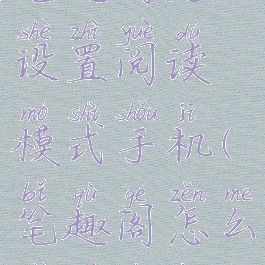 shè zhì yuè dú
设置阅读
mó shì shǒu jī
模式手机(
bǐ qù gé zěn me
笔趣阁怎么